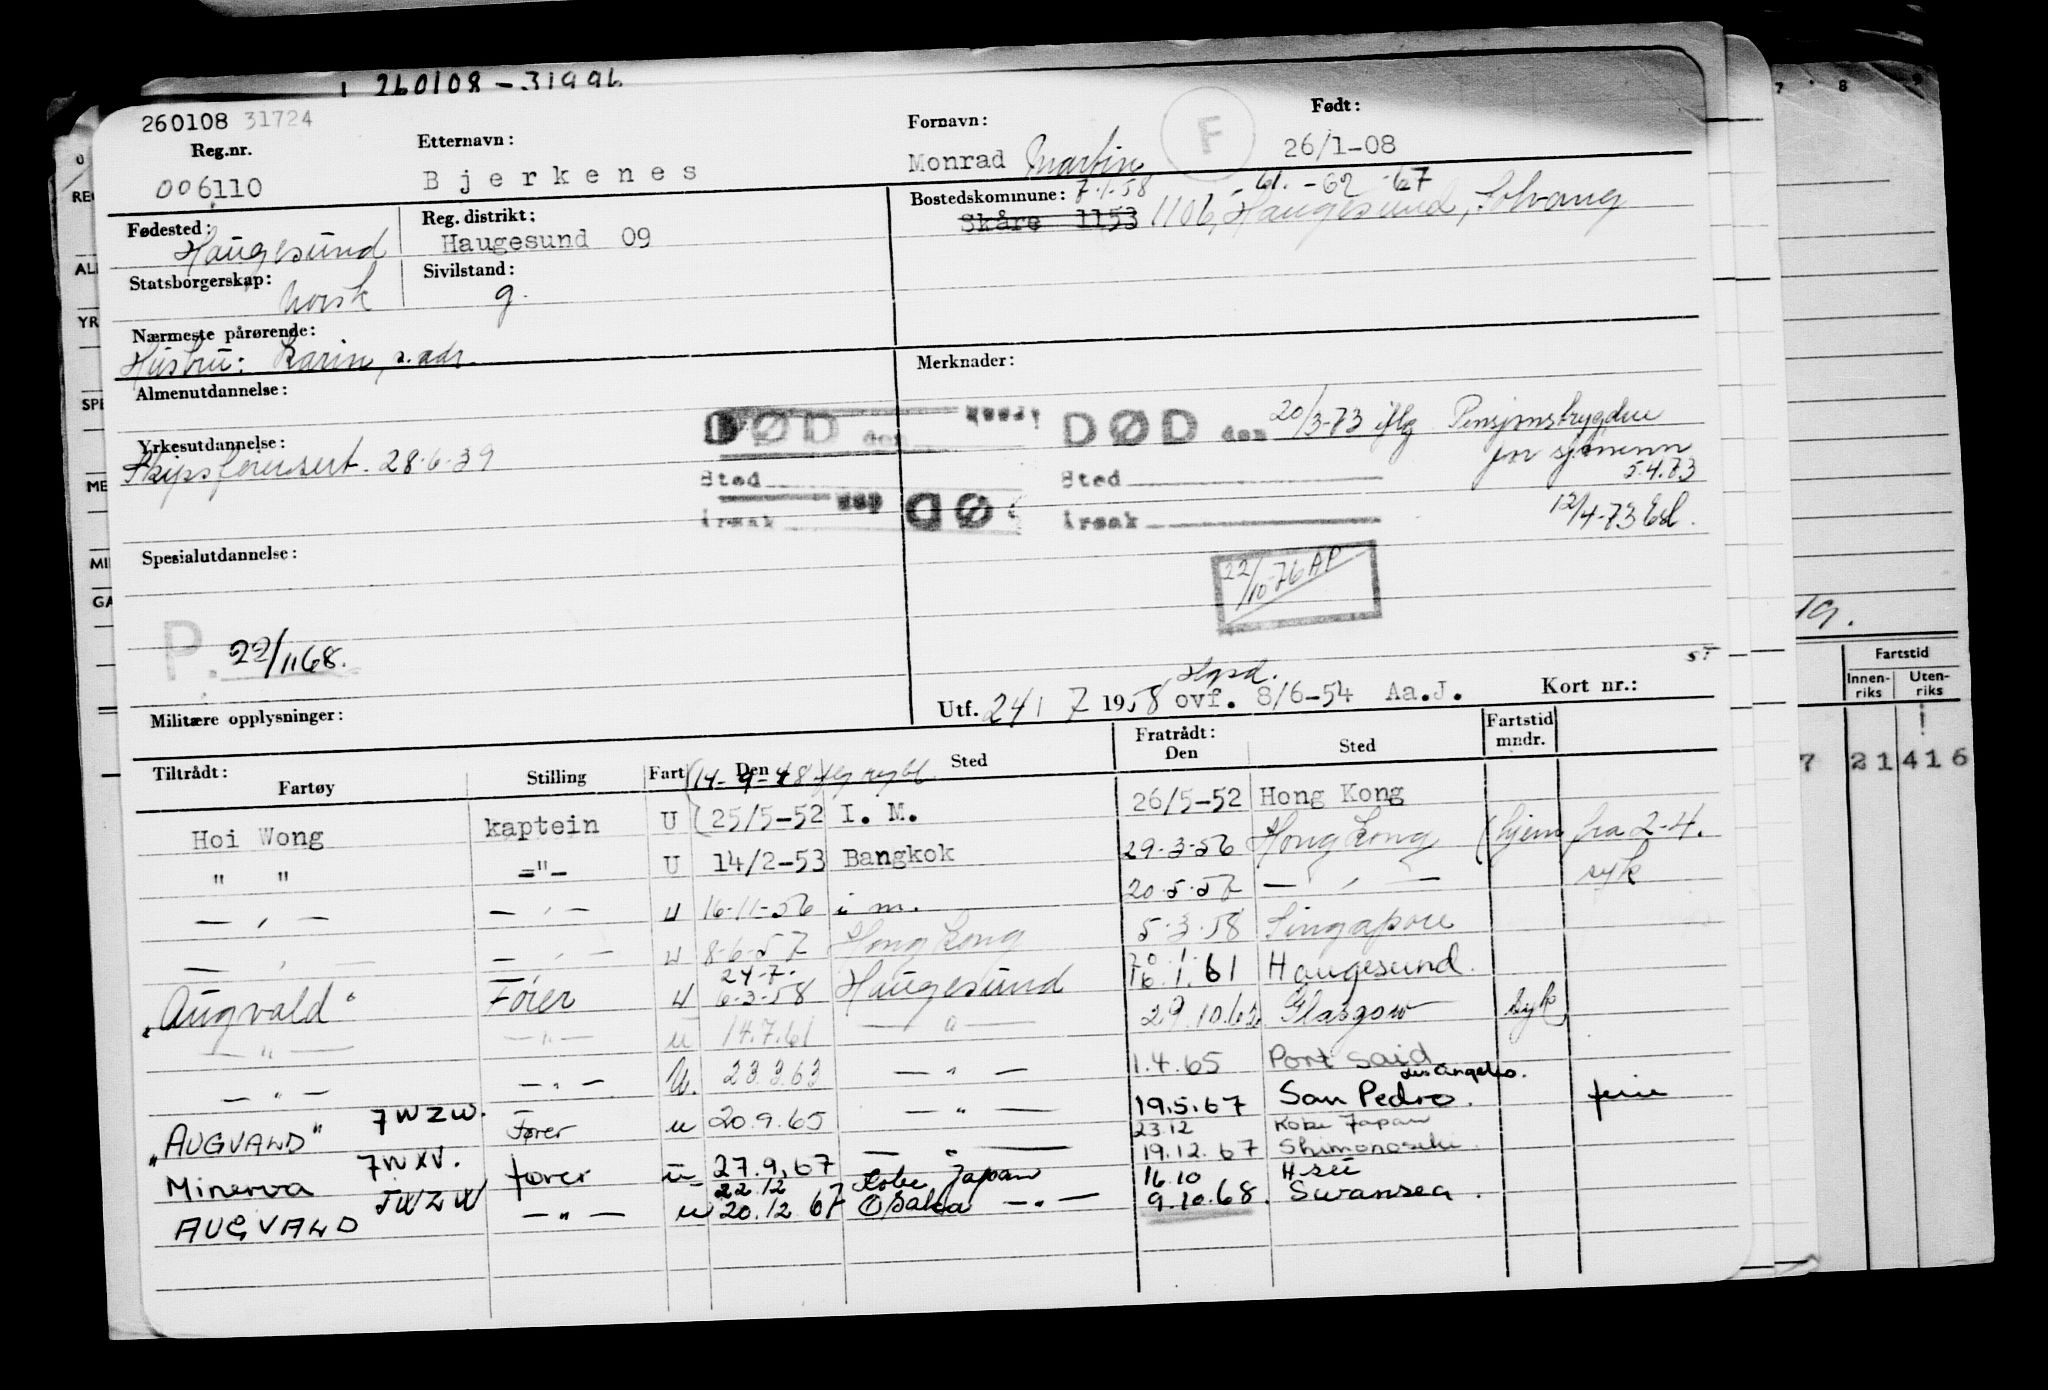 260108 - 31996
260108 31724
Reg.nr.
006110
Etternavn:
Bjerkenes
Fornavn:
Monrad Martin
F
Født:
26/1-08
Fødested:
Haugesund
Reg. distrikt:
Haugesund 09
Bostedskommune: 7.1.58 -61. -62 -67
Skåre 1153 1106, Haugesund, Solvang
Statsborgerskap:
norsk
Sivilstand:
g.
Nærmeste pårørende:
Hustru: Karin, s. adr.
Merknader:
Almenutdannelse:
Yrkesutdannelse:
Skipsførersert. 28.6.39
DØD den
Sted
Årsak
DØD den 20/3-73 iflg Pensjonstrygden
for sjømenn
5.4.73
Sted
Årsak
12/4-73 Esl.
22/10-76 AP
Spesialutdannelse:
P. 22/11 68.
Militære opplysninger:
Utf. 24/7 1958 ovf. 8/6-54 Aa.J. Kort nr.:
ST
Tiltrådt:
Fartøy Stilling Fart Den Sted
Fratrådt:
Den Sted
Fartstid
mndr.
(14-9-48
Hoi Wong kaptein U (25/5-52 I. M. 26/5-52 Hong Kong
" " -"- U 14/2-53 Bangkok 29.3.56 Hong Kong (hjem fra 2-4.
syk
— " — — " — u 16-11-56 i m. 20.5.57 — " —
— " — — " — u 8-6-57 Hong Kong 5.3.58 Singapore
24-7-
"Augvald" Fører u 6-3-58 Haugesund 16.1.61 Haugesund
20.1.
— " — — " — u 14.7.61 — " — 29.10.62 Glasgow syk
— " — — " — U. 23.3.63 — " — 1.4.65 Port Said
"AUGVALD" JWZW. Fører u 20.9.65 — " — 19.5.67 San Pedro. Los Angeles. ferie
23.12 Kobe Japan
Minerva JWXV. fører u 27.9.67 — " — 19.12.67 Shimonoseki.
22.12 Kobe Japan 16.10 H-sü
AUGVALD JWZW — " — u 20.12 67 Osaka — " — 9.10.68. Swansea.
7 8
19.
Fartstid
Innen-
riks
Uten-
riks
7 21 416